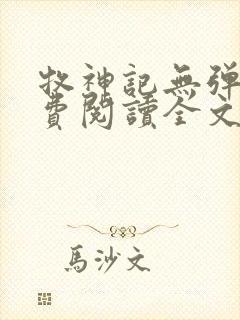 牧神記無彈
費閱讀全文
馬沙文